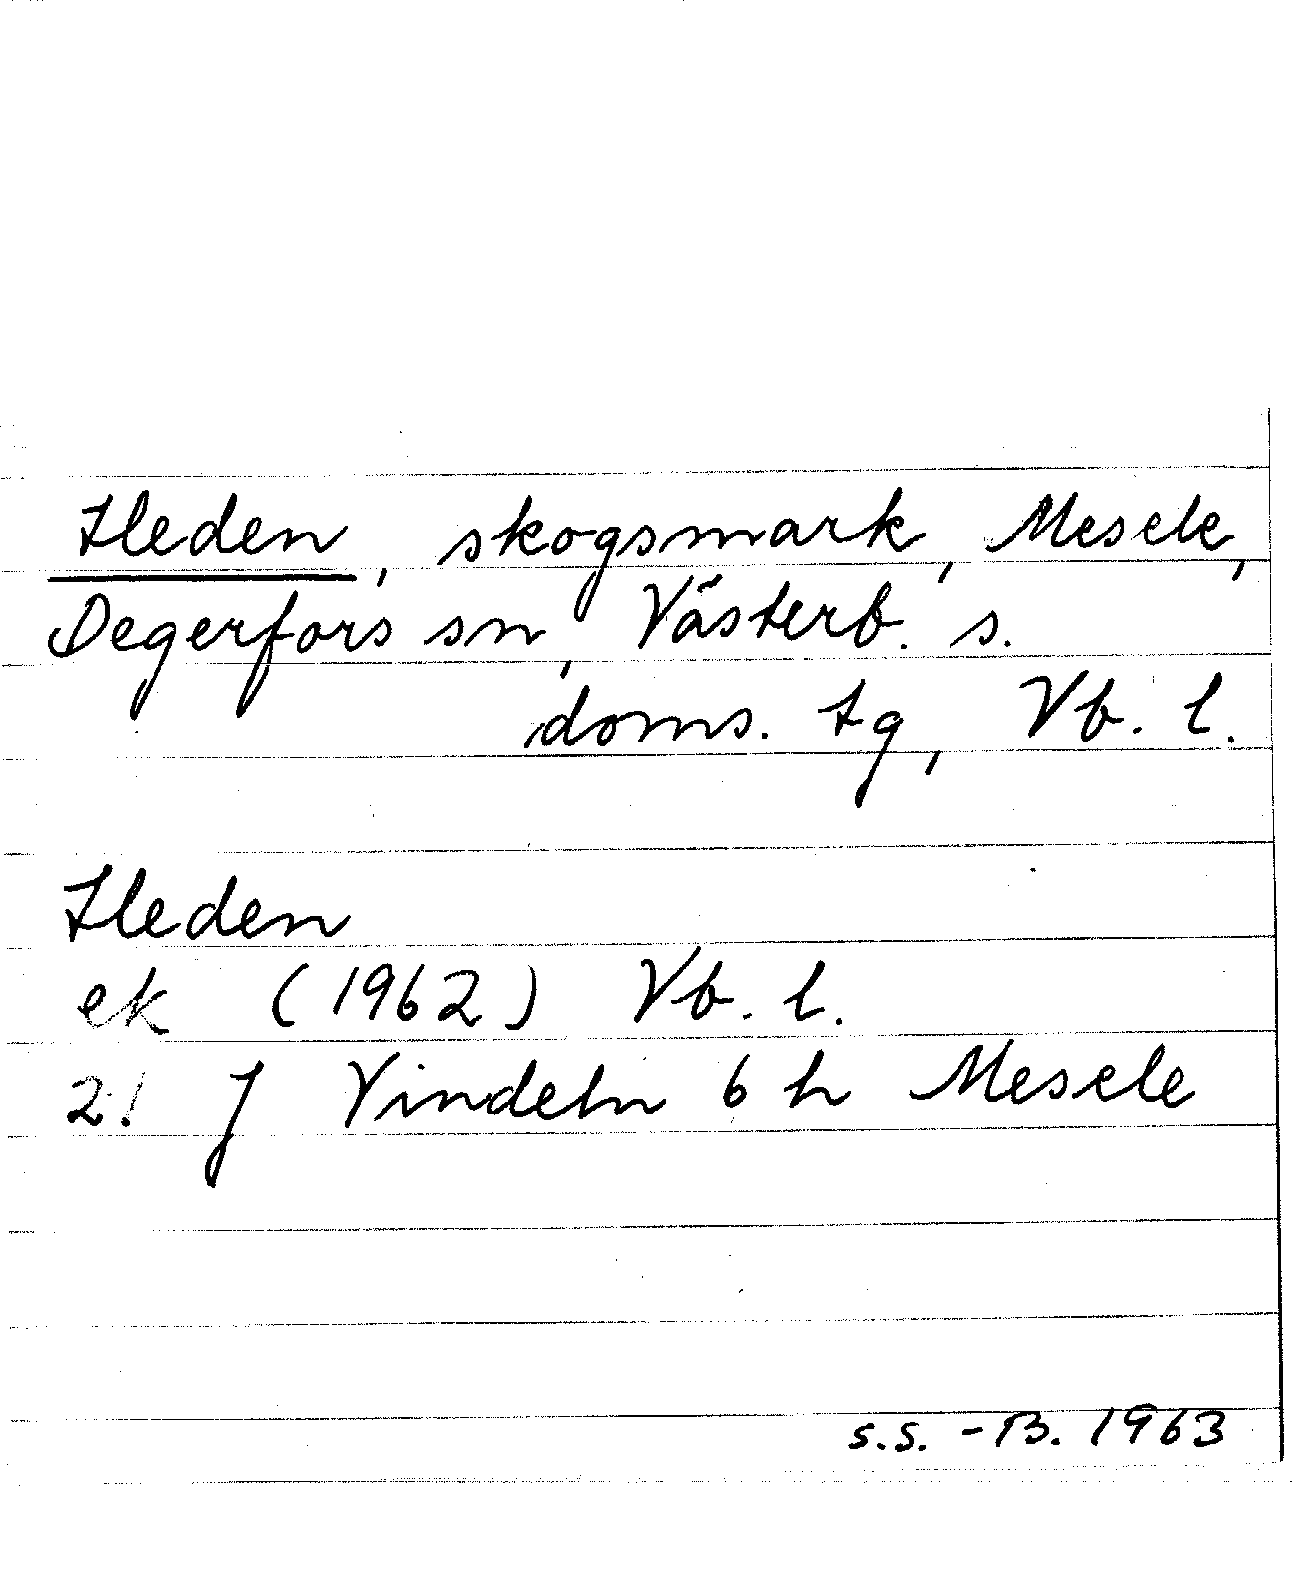 Heden, skogsmark, Mesele,
Degerfors sn, Västerb. s.
doms. tg, Vb. l.
Heden
ek (1962) Vb. l.
21 J Vindeln 6 h Mesele
s.s. - B. 1963